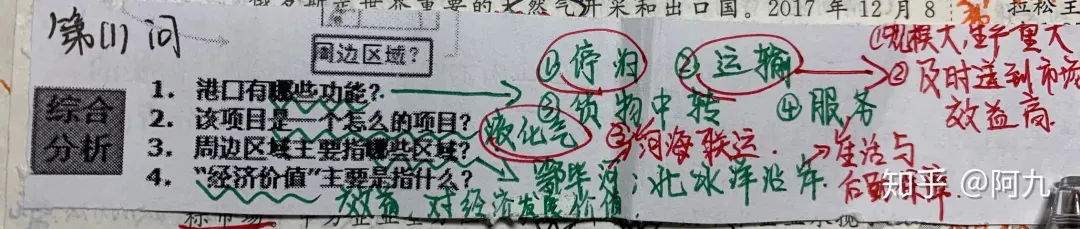 俄罗斯是世界重要的天然气开采和出口国。2017年12月8
第(1)问
周边区域？
综合
分析
1. 港口有哪些功能？
2. 该项目是一个怎么的项目？
3. 周边区域主要指哪些区域？
4. “经济价值”主要是指什么？
①停泊 ②运输
③货物中转 ④服务
①规模大,生产量大
②及时送到市场
效益高
液化气
③河海联运
生活与
后勤保障
鄂毕河；北冰洋沿岸
效益 对经济发展价值
知乎 @阿九